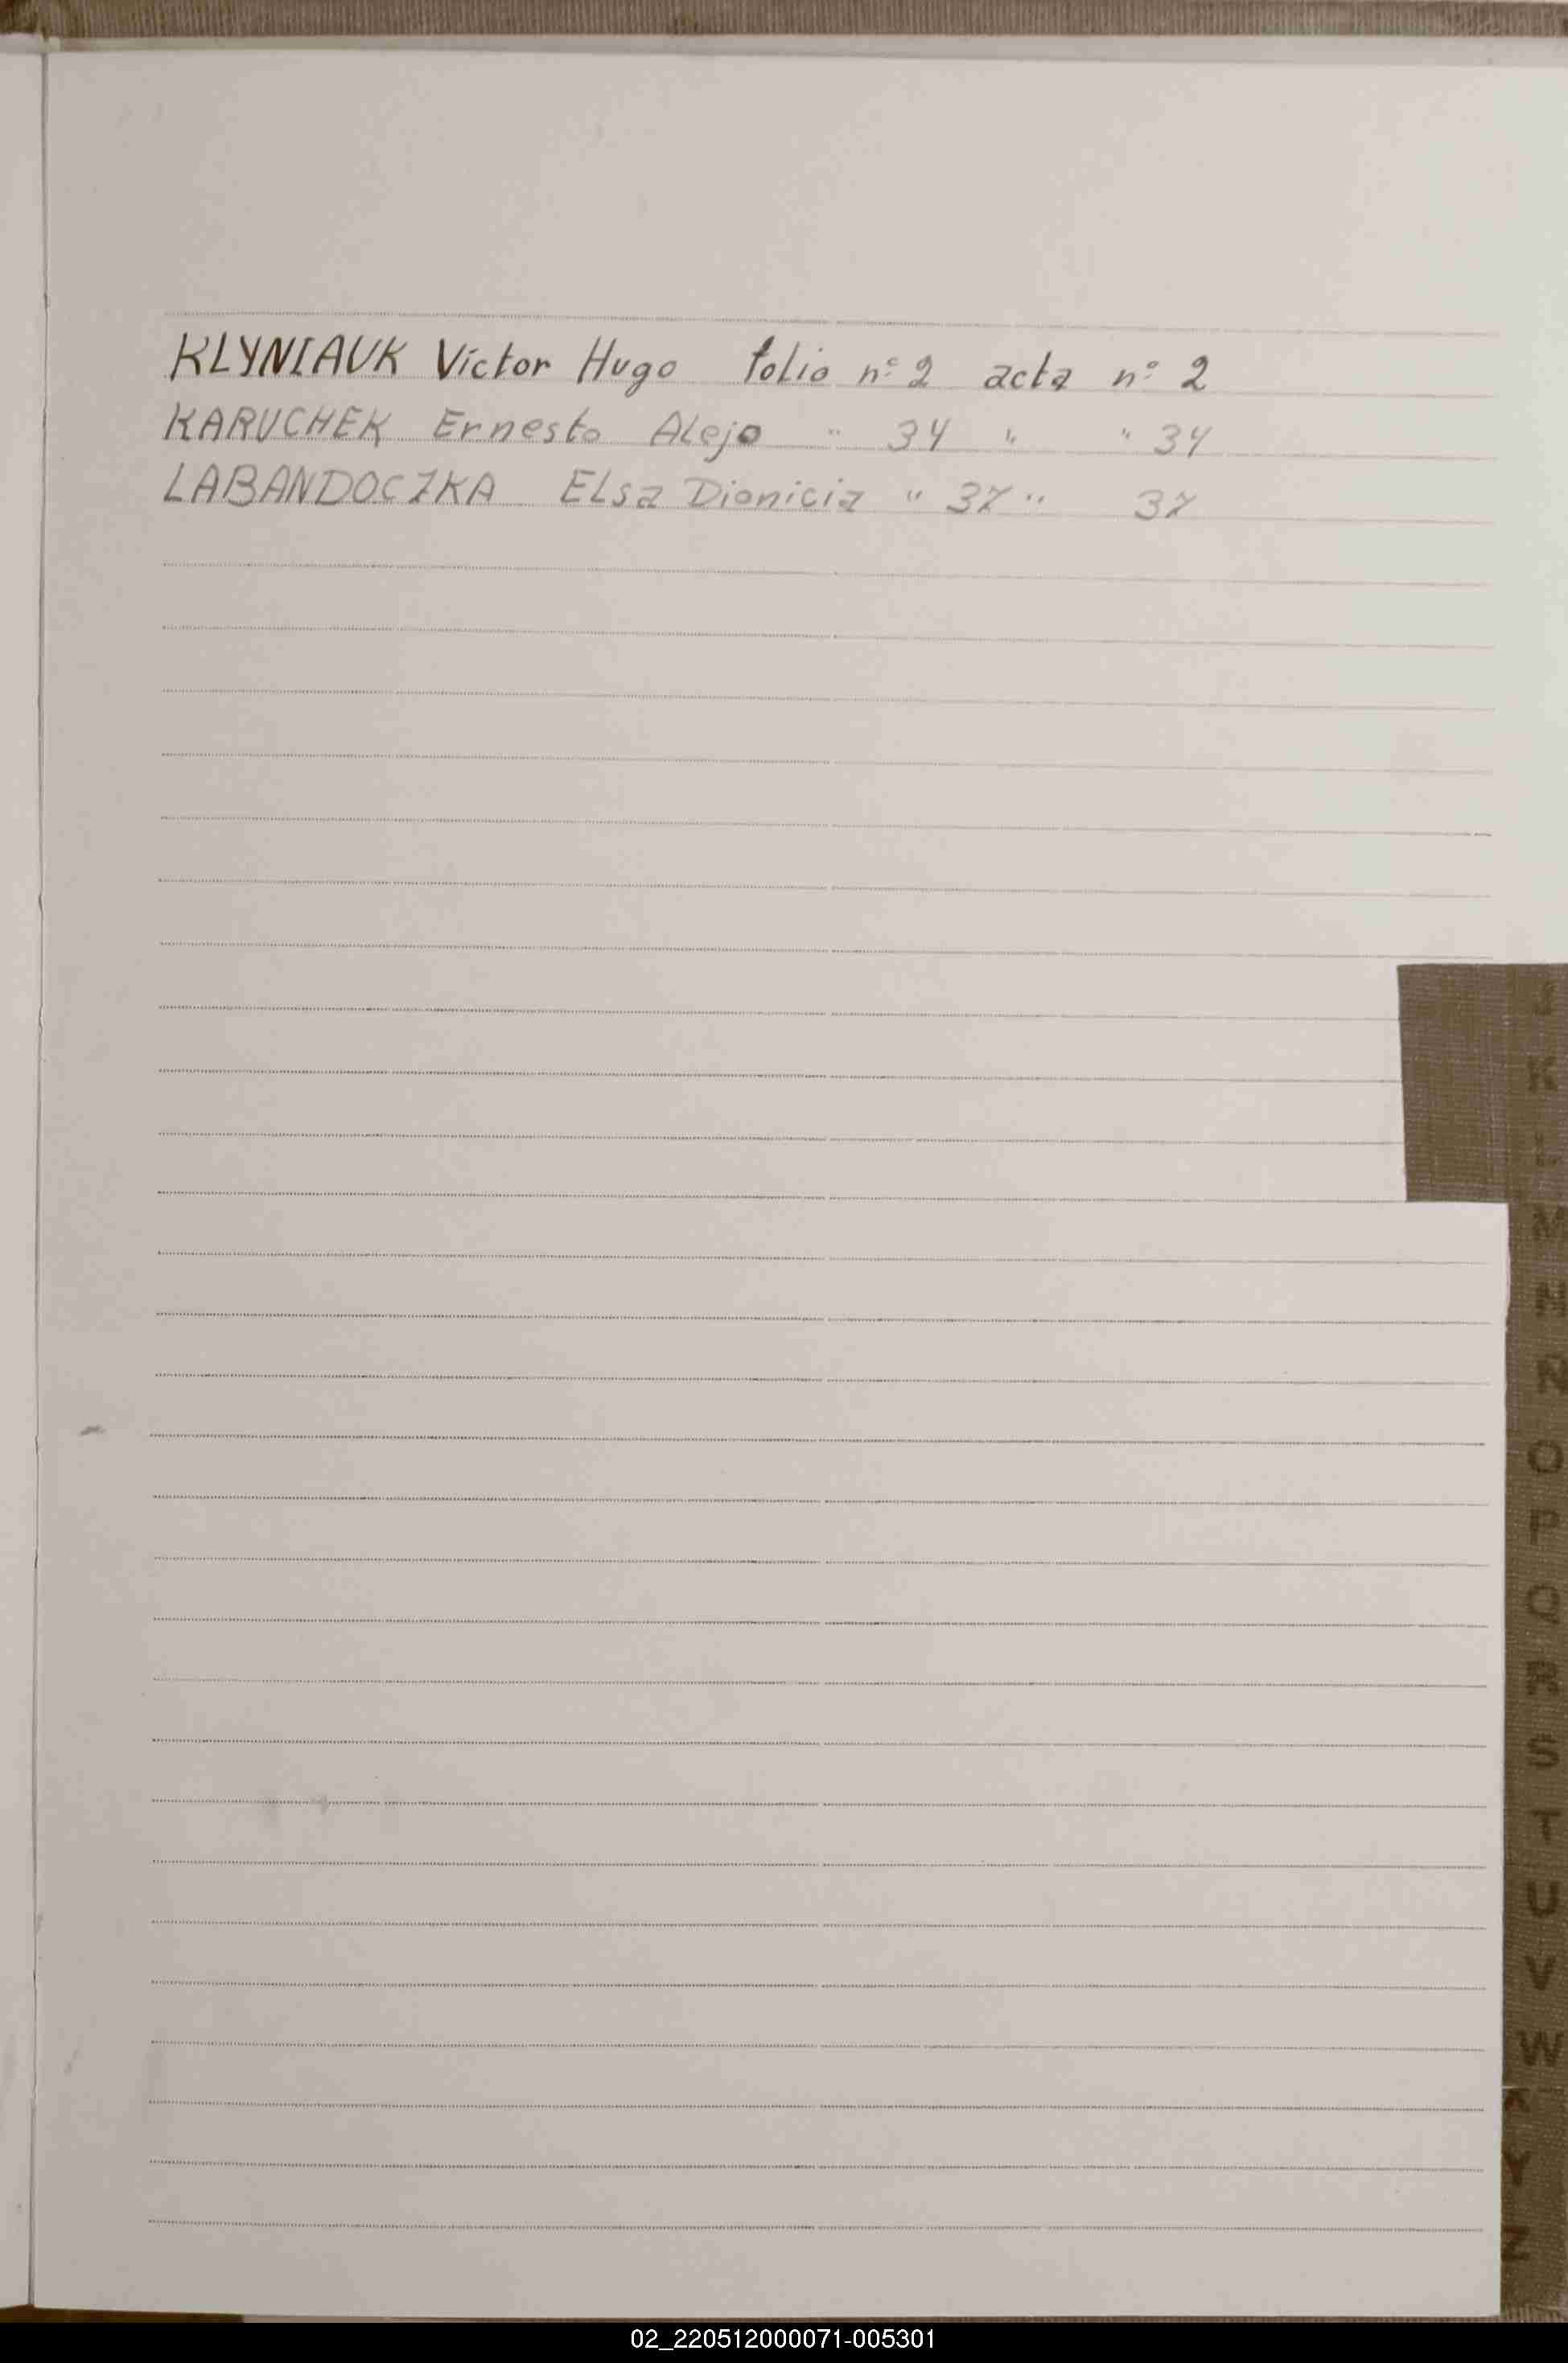 KLYNIAUK Víctor Hugo folio nº 2 acta nº 2
KARUCHEK Ernesto Alejo " 34 " " 34
LABANDOCZKA ELsa Dionicia " 37 " 37
J
K
L
M
N
Ñ
O
P
Q
R
S
T
U
V
W
X
Y
Z
02_220512000071-005301